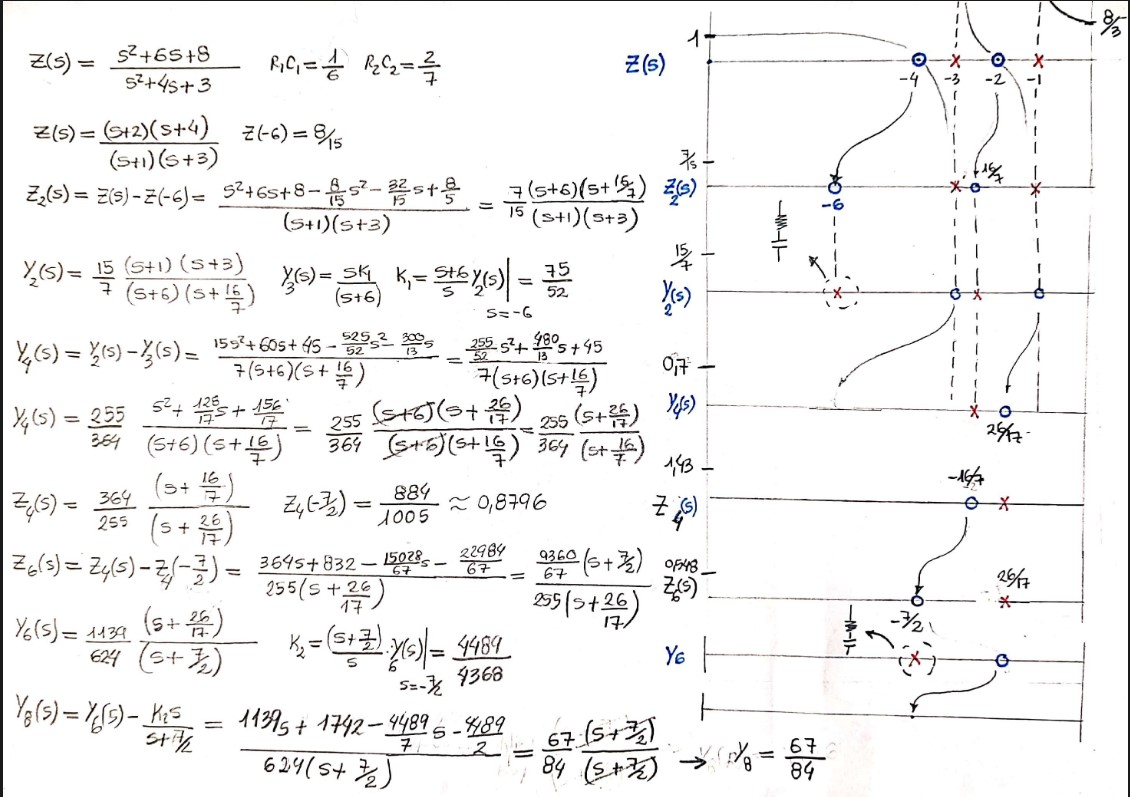 Z(s) = (s²+6s+8)/(s²+4s+3) R₁C₁ = 1/6 R₂C₂ = 2/7
Z(s) = (s+2)(s+4)/((s+1)(s+3)) Z(-6) = 8/15
Z₂(s) = Z(s) - Z(-6) = (s²+6s+8 - 8/15 s² - 32/15 s + 8/5)/((s+1)(s+3)) = 7/15 (s+6)(s+16/7)/((s+1)(s+3))
Y₂(s) = 15/7 (s+1)(s+3)/((s+6)(s+16/7)) Y₃(s) = sK₁/(s+6) K₁ = (s+6)/s Y₂(s)| s=-6 = 75/52
Y₄(s) = Y₂(s) - Y₃(s) = (15s²+60s+45 - 525/52 s² - 300/13 s)/(7(s+6)(s+16/7)) = (255/52 s² + 480/13 s + 45)/(7(s+6)(s+16/7))
Y₄(s) = 255/364 (s² + 128/17 s + 156/17)/((s+6)(s+16/7)) = 255/364 (s+6)(s+26/17)/((s+6)(s+16/7)) = 255/364 (s+26/17)/(s+16/7)
Z₄(s) = 364/255 (s+16/17)/(s+26/17) Z₄(-7/2) = 884/1005 ≈ 0,8796
Z₆(s) = Z₄(s) - Z₄(-7/2) = (364s+832 - 15028/67 s - 22984/67)/(255(s+26/17)) = 9360/67 (s+7/2)/(255(s+26/17))
Y₆(s) = 1139/624 (s+26/17)/(s+7/2) K₂ = (s+7/2)/s · Y₆(s)| s=-7/2 = 4489/4368
Y₈(s) = Y₆(s) - K₂s/(s+7/2) = (1139s + 1742 - 4489/7 s - 4489/2)/(624(s+7/2)) = 67/84 (s+7/2)/(s+7/2) → Y₈ = 67/84
8/3
1
Z(s)
-4 -3 -2 -1
7/15
Z₂(s)
-6
16/7
15/7
Y₂(s)
0,7
Y₄(s)
26/17
1,43
-16/7
Z₄(s)
0,548
Z₆(s)
-7/2
26/17
Y₆